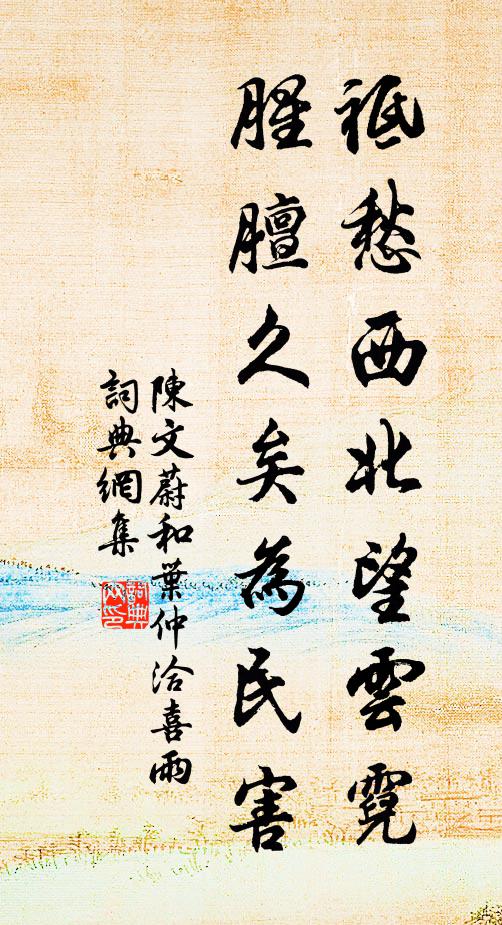 祗愁西北望雲霓
腥膻久矣為民害
陳文蔚和葉仲洽喜雨
詞典網集